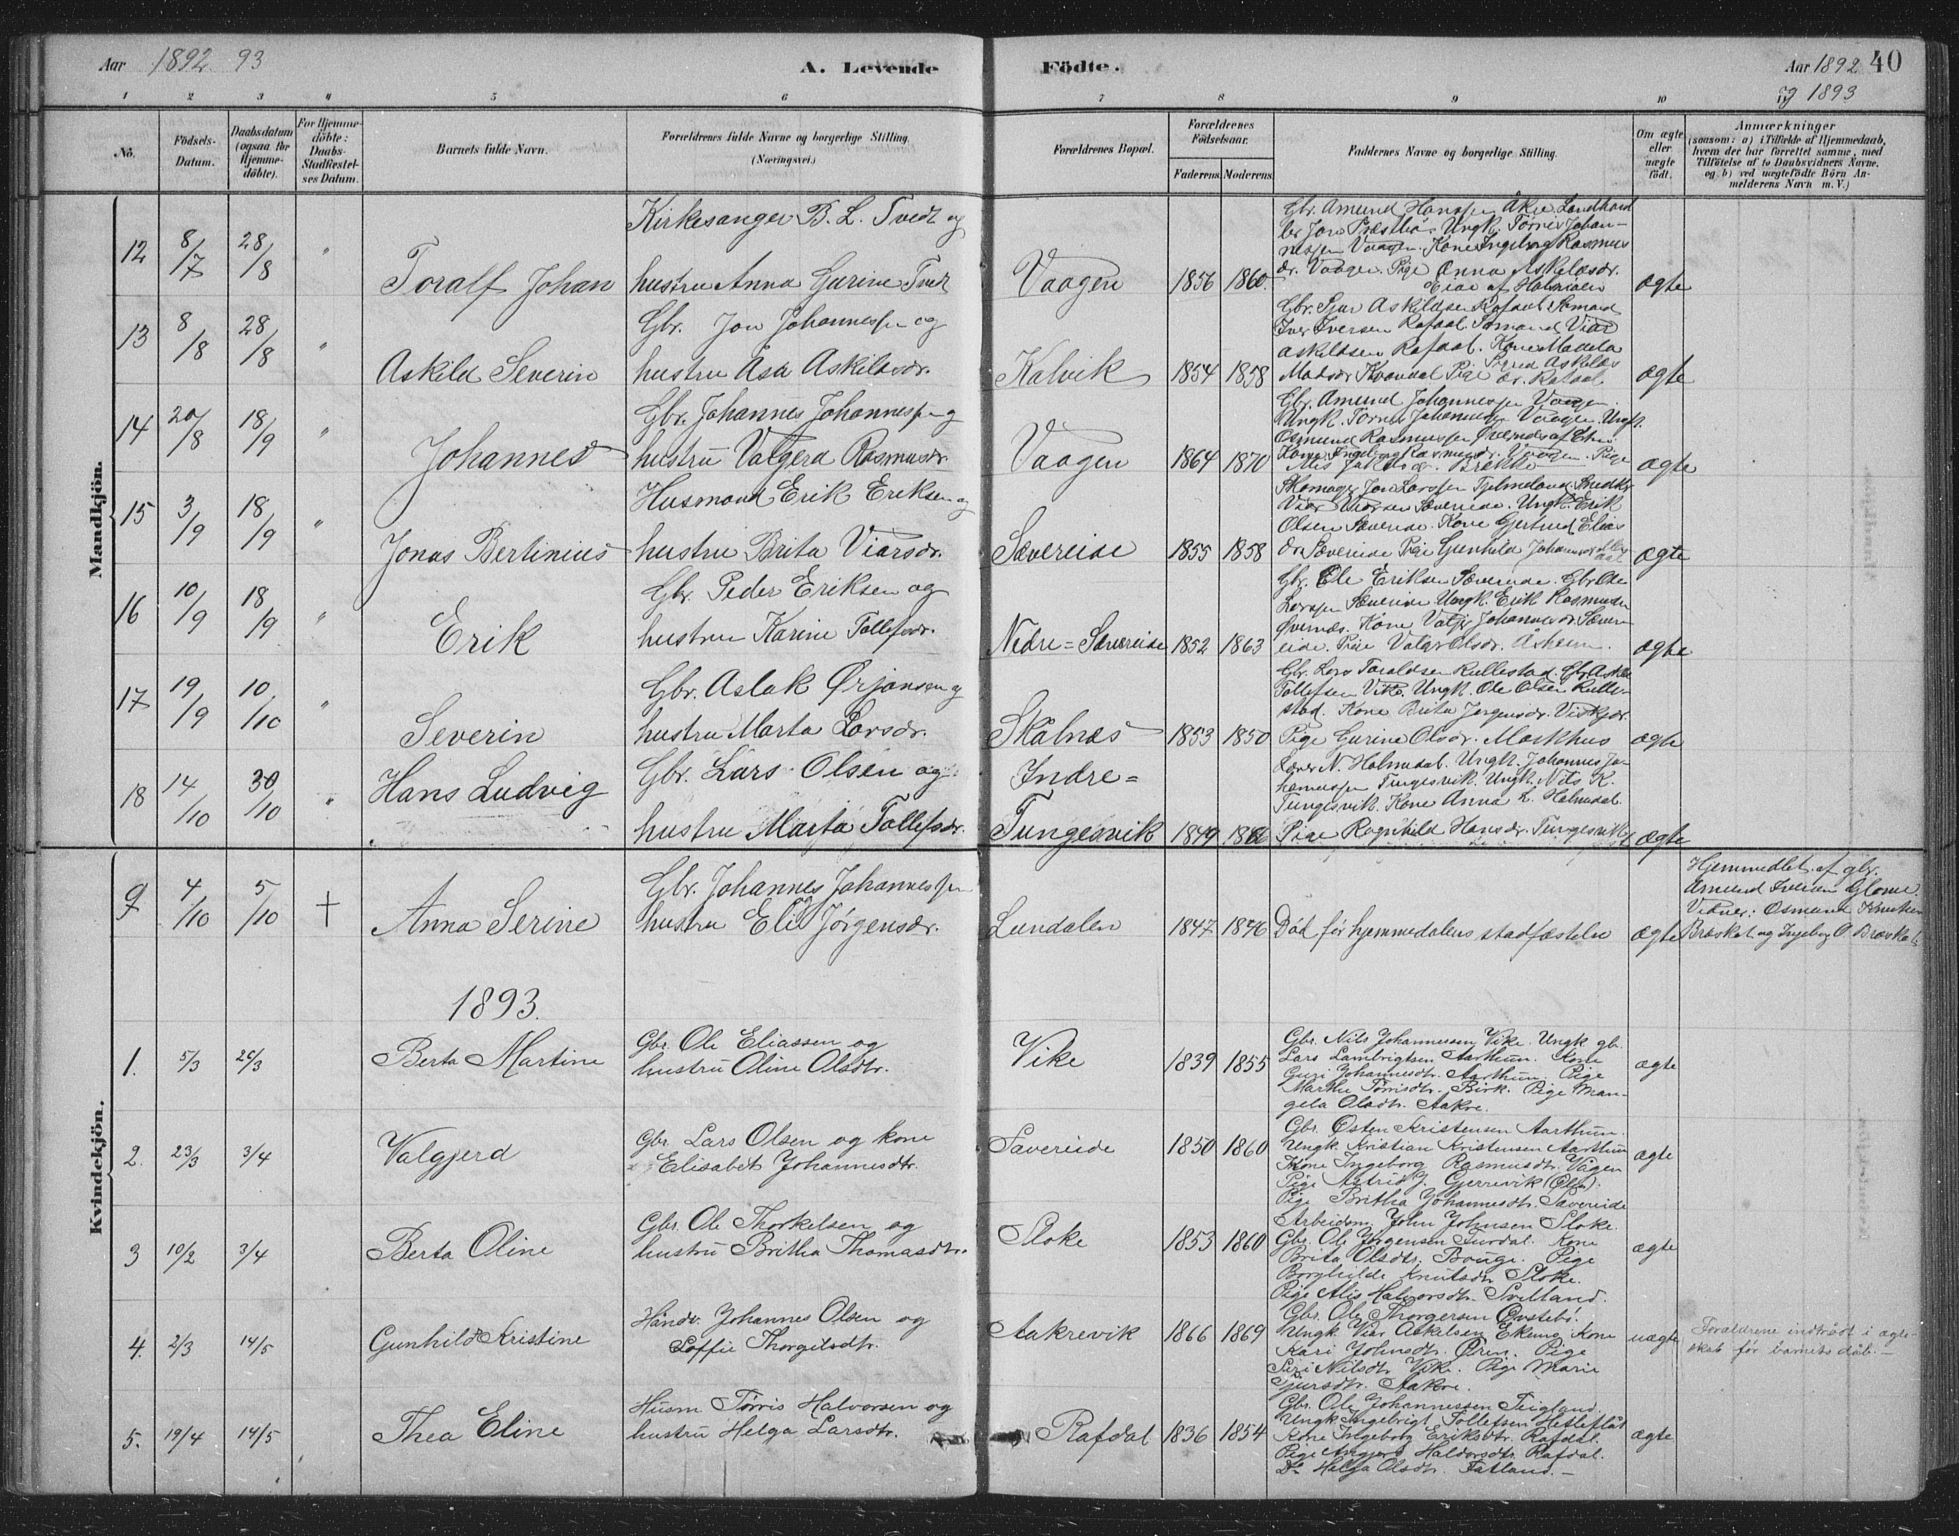 Aar 1892. 93
A. Levende Födte.
Aar 1892 40
og 1893
1 2 3 4 5 6 7 8 9 10 11
No.
Födsels-
Datum.
Daabsdatum
(ogsaa for
Hjemme-
döbte).
For Hjemme-
döbte:
Daabs-
Stadfæstel-
ses Datum.
Barnets fulde Navn.
Forældrenes fulde Navne og borgerlige Stilling.
(Næringsvei.)
Forældrenes Bopæl.
Forældrenes
Födselsaar.
Faderens. Moderens.
Faddernes Navne og borgerlige Stilling.
Om ægte
eller
uægte
födt.
Anmærkninger
(saasom: a) i Tilfælde af Hjemmedaab,
hvem der har forrettet samme, med
Tilföielse af to Daabsvidners Navne,
og b) ved uægtefödte Börn An-
melderens Navn m. V.)
Mandkjön.
12 8/7 28/8 " Toralf Johan
Kirkesanger B. L. Tvedt og
hustru Anna Gurine Tvedt
Vaagen 1856 1860.
Gbr. Amund Hanssen Åkre. Landhand
nessen Vaagen. Kone Ingeborg Rasmus
dr. Vaagen. Pige Anna Askildsdr.
ægte
13 8/8 28/8 " Askild Severin
Gbr. Jon Johannessen og
hustru Åsa Askildsdr.
Kalvik 1854 1858
Iver Iversen Rafdal. Sømand Viar
Askildsen Rafdal. Kone Madela
Madsdr. Kvandal Pige
ægte
14 20/8 18/9 " Johannes
Gbr. Johannes Johannessen og
hustru Valgerd Rasmusdr.
Vaagen 1864 1870
Gbr. Amund Johannessen Vaagen.
Ungk. Tørres Johannessen Vaagen. Ungk.
Osmund Rasmussen Øvernes af Etne
Kone Ingeborg Rasmusdr. Vaagen. Pige
ægte
15 3/9 18/9 " Jonas Bertinius
Husmand Erik Eriksen og
hustru Brita Viarsdr.
Sævereide 1855 1858
Skomager Jon Larssen Tjelmeland. Snedkr.
Viar Viarsen Sævereide. Ungk. Erik
Olsen Sævereide. Kone Gjertrud Elias
dr. Sævereide Pige Gunhild
ægte
16 10/9 18/9 " Erik
Gbr. Peder Eriksen og
hustru Karine Tollefsdr.
Nedre=Sævereide 1852 1863
Gbr. Ole Eriksen Sævereide. Gbr. Ole
Larssen Sævereide Ungk. Erik Rasmussen
Øvernes. Kone Valgr. Johannesdr. Sæver-
eide. Pige Valgr. Olsdr. Åsheim.
ægte
17 19/9 10/10 " Severin
Gbr. Aslak Ørjansen og
hustru Marta Larsdr.
Skålnæs 1853 1850
Gbr. Lars Taraldsen Rullestad. Gbr. Aslak
Tollefsen Vike. Ungk. Ole Olsen Rulle-
stad. Kone Brita Jørgensdr.
Pige Gurine Olsdr. Markhus
ægte
18 14/10 30/10 " Hans Ludvig
Gbr. Lars Olsen og
hustru Marta Tollefsdr.
Indre=
Tungesvik 1849
Lærer N. Holmedal. Ungk. Johannes Jo-
hannessen Tungesvik. Ungk. Nils K.
Tungesvik. Kone Anna L. Holmedal.
Pige Ragnhild Hansdr. Tungesvik
ægte
Kvindekjön.
9 4/10 5/10 + Anna Serine
Gbr. Johannes Johannessen
og
hustru Eli Jørgensdr.
Lundalen 1847
Død før hjemmedåbens stadfæstelse
ægte
Hjemmedbt. af gbr.
Amund Iversen
Vidner: Osmund Knutsen
Bråskat og Ingeborg O. Bråskat.
1893.
1. 5/3 26/3 Berta Martine
Gbr. Ole Eliassen og
hustru Oline Olsdtr.
Vike 1839 1855
Gbr. Nils Johannessen Vike. Ungk gbr.
Lars Lambrigtsen Aarthun. Kone
Guri Johannesdtr. Aarthun. Pige
Martha Tørrisdtr. Birk. Pige Man-
gela Olsdtr. Aakre.
ægte
2. 23/3 3/4 Valgjerd
Gbr. Lars Olsen og kone
Elisabet Johannesdtr.
Savereide 1850 1860
Gbr. Østen Kristensen Aarthun.
Ungk. Kristian Kristensen Aarthun
Kone Ingeborg Rasmusdtr. Vågen
Pige Astrid J. Gjerrevik (Ølen).
Pige Britha Johannesdtr. Savereide
ægte
3 10/2 3/4 Berta Oline
Gbr. Ole Thorkelsen og
hustru Britha Thomasdtr.
Stoke 1853 1860
Arbeidsm. John Johnsen Stoke.
Gbr. Ole Jørgensen Furdal. Kone
Brita Olsdtr. Bouge. Pige
Borghilde Knutsdtr. Stoke.
Pige Alis Halvorsdtr. Svelland.
ægte
4. 2/3 14/5 Gunhild Kristine
Håndv. Johannes Olsen og
Soffie Thorgilsdtr.
Aakrevik 1866 1869
Gbr. Ole Thorgersen Østebö.
Ungk. Viar Askelsen Ekung Kone
Kari Johnsdtr. Øren. Pige
Siri Nilsdtr Vike. Pige Marie
Sjursdtr. Aakre.
uægte
Forældrene indtrådt i ægte-
skab før barnets dåb. —
5. 19/4 14/5 Thea Eline
Husm Tørris Halvorsen og
hustru Helga Larsdtr.
Rafdal 1836 1854
Gbr. Ole Johannessen Teigland.
Ungk Ingebrigt Tollefsen Hetleflåt
Kone Ingeborg Eriksdtr. Rafdal.
Pige Anggerd Haldorsdtr. Rafdal.
Do Helga Olsdtr. Fatland. —
ægte